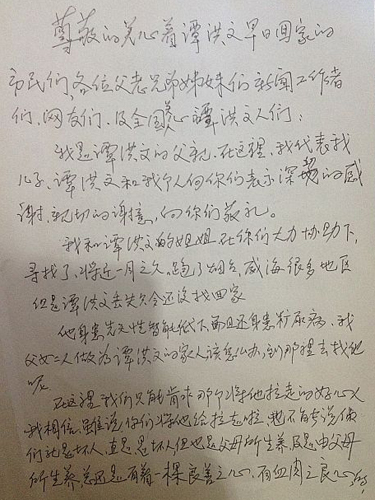 尊敬的关心着谭洪文早日回家的
市民们,各位父老兄弟姊妹们新闻工作者
们、网友们、及全国关心谭洪文人们:
我是谭洪文的父亲,在这裡,我代表我
儿子、谭洪文和我个人向你们表示深切的感
谢,亲切的谢接,向你们敬礼。
我和谭洪文的姐姐在你们大力协助下,
寻找了将近一月之久,跑了烟台、威海很多地区
但是谭洪文丢失久今还没找回家
他身患先天性智力低下而且还身患糖尿病,我
父女二人做为谭洪文的家人该怎么办,到那里去找他
呢
在这裡我们只能肯求那个将他拉走的好心人
我相信,虽说你们将他给拉走啦,也不能说你
们就是坏人,真是坏人但也是父母所生养,既是由父母
所生养,总还是有着一棵良善之心,有血肉之良心的,